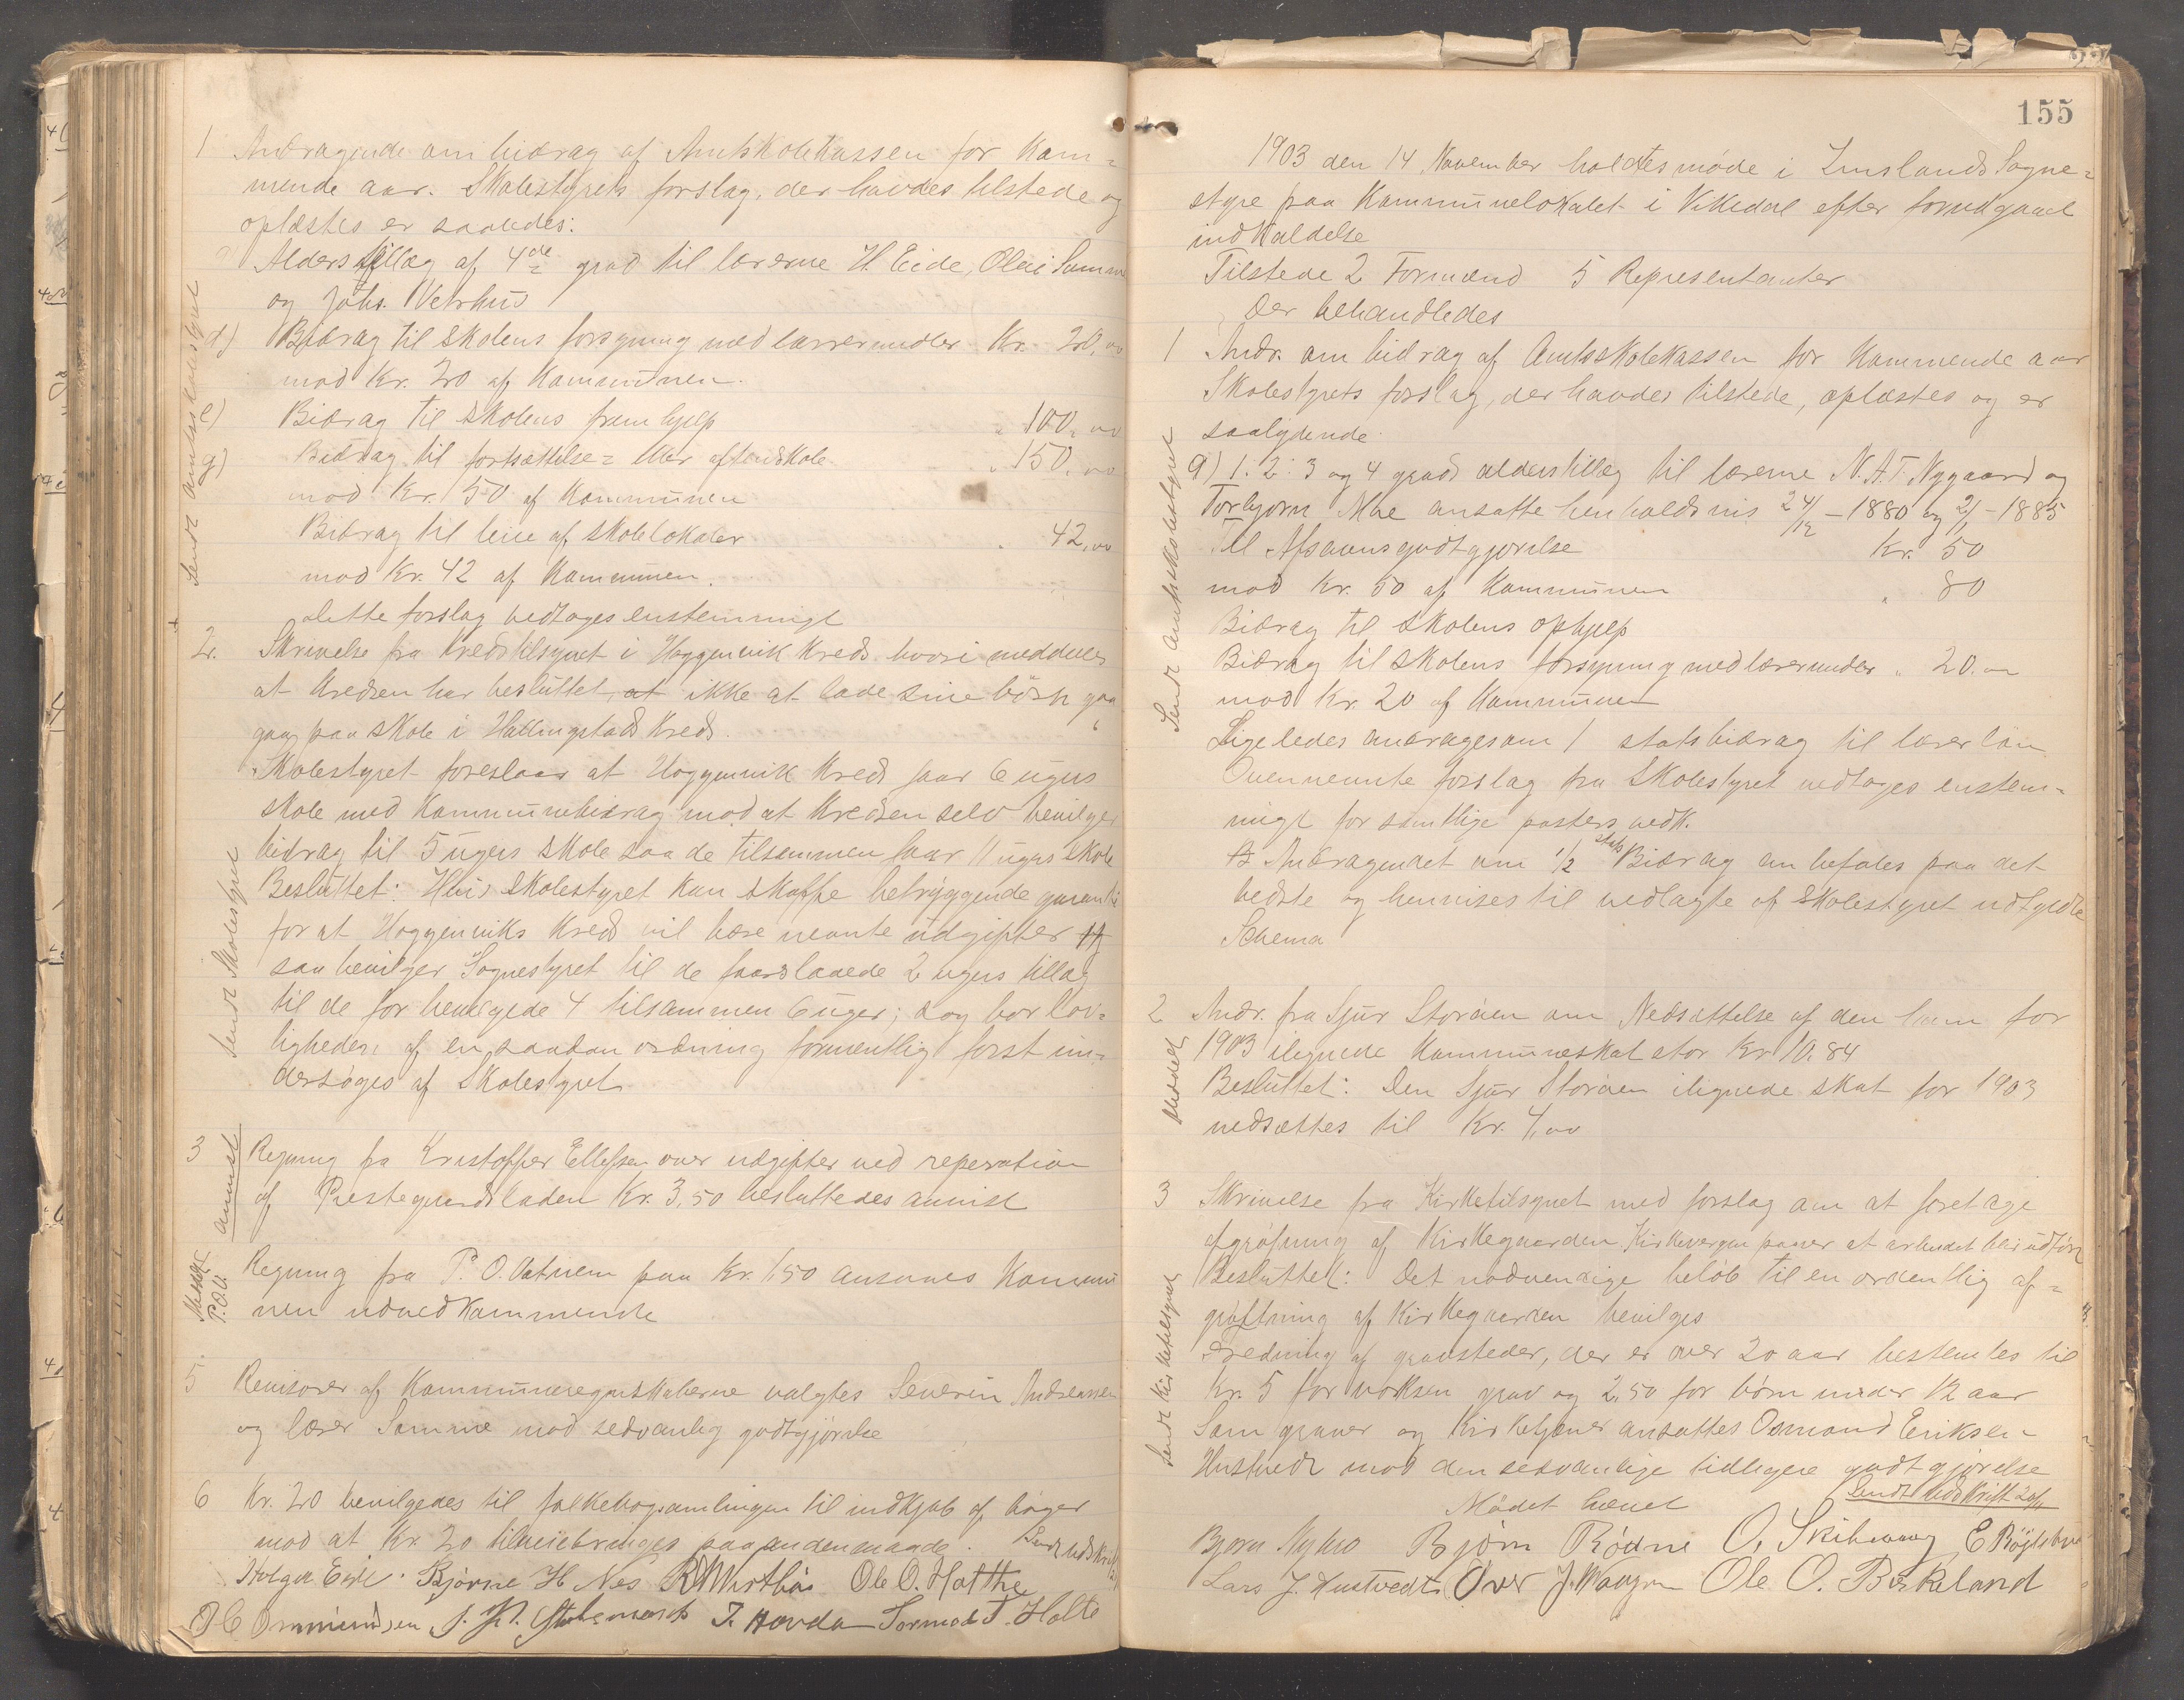 1 Andragende om bidrag af Amtskolekassen for kom-
mende aar. Skolestyrets forslag, der havdes tilstede og
oplæstes er saaledes:
Alderstillæg af 4de grad til lærerne H. Eide, Olai Somme
og Johs. Vetrhus
d) Bidrag til skolens forsyning med læreremidler Kr. 20,00
mod Kr. 20 af Kommunen.
e) Bidrag til skolens fremhjelp " 100,00
g) Bidrag til fortsættelse- eller aftenskole " 150,00
mod Kr. 50 af Kommunen
Bidrag til leie af skolelokaler " 42,00
mod Kr. 42 af Kommunen.
Dette forslag vedtoges enstemmigt
Sendt amtsskolestyret
2. Skrivelse fra Kredstilsynet i Hoggenvik Kreds hvori meddeles
at Kredsen har besluttet, at ikke at lade sine børn gaa
gaa paa skole i Hallingstad Kreds.
Skolestyret foreslaar at Hoggenvik Kreds faar 6 ugers
skole med Kommunebidrag mod at Kredsen selv bevilger
bidrag til 5 ugers skole saa de tilsammen faar 11 ugers skole
Besluttet: Hvis skolestyret kan skaffe betryggende garanti
for at Hoggenviks Kreds vil bære nevnte udgifter
saa bevilger Sognestyret til de foreslaaede 2 ugers tillæg
til de før bevilgede 4 tilsammen 6 uger; dog bør lov-
ligheden af en saadan ordning formentlig først un-
dersøges af Skolestyret
Sendt Skolestyret
3 Regning fra Kristoffer Ellefsen over udgifter ved reperation
af Prestegaardsladen Kr. 3,50 besluttedes anvist
anvist
Regning fra P. O. Vatnem paa Kr. 1,50 ansaaes Kommu
nen uvedkommende
Meddelt
P.O.V.
5 Revisorer af Kommuneregnskaberne valgtes Severin Andreassen
og lærer Somme mod sedvanlig godtgjørelse
6 Kr. 20 bevilgedes til folkebogsamlingen til indkjøb af bøger
mod at Kr. 20 tilveiebringes paa anden maade. Sendt udskrift
Holger Eide Bjørne H Nes Ole O. Hatthe
O C Ommundsen T. Hovda Tormod T. Holte
155
1903 den 14 November holdtes møde i Imslands Sogne-
styre paa Kommunelokalet i Vikedal efter forudgaael
indkaldelse
Tilstede 2 Formænd 5 Representanter
Der behandledes
1 Andr. om bidrag af Amtsskolekassen for Kommende aar
Skolestyrets forslag, der havdes tilstede, oplæstes og er
saalydende
a) 1. 2. 3 og 4 grads alderstillæg til lærerne N. A. T. Nygaard og
Torbjørn Moe ansatte henholdsvis 24/12 - 1880 og 2/1 - 1885
Til Afsavnsgodtgjørelse Kr. 50
mod Kr. 50 af Kommunen " 80
Bidrag til skolens ophjelp
Bidrag til skolens forsyning med læremidler " 20.00
mod Kr. 20 af Kommunen
Ligeledes andrages om 1 statsbidrag til lærerløn
Ovennevnte forslag fra Skolestyret vedtoges enstem-
migt for samtlige posters vedk.
Andragendet om 1/2 stats Bidrag anbefales paa det
bedste og henvises til vedlagte af skolestyret udfyldte
Schema
Sendt amtsskolestyret
2 Andr. fra Sjur Stordien om Nedsættelse af den ham for
1903 ilignede Kommuneskat stor Kr 10.84
Besluttet: Den Sjur Stordien ilignede skat for 1903
nedsættes til Kr. 4,00
Meddelt
3 Skrivelse fra Kirketilsynet med forslag om at foretage
afgrøfning af Kirkegaarden. Kirkevergen passer at arbeidet blir udført
Besluttet: Det nødvendige beløb til en ordentlig af-
grøftning af Kirkegaarden bevilges
Fredning af gravsteder, der er over 20 aar bestemtes til
Kr. 5 for voksen grav og 2,50 for børn under 12 aar
Som graver og Kirketjener ansattes Osmand Eriksen
Hustvedt mod den sedvanlige tidligere godtgjørelse
Sendt Kirketilsynet
Sendt udskrift
Mødet hævet
Bjørn Nybro Bjørn Rødne O. Skibevaag E Røgelstve
Lars J. Hustvedt Iver J. Waage Ole O. Birkeland